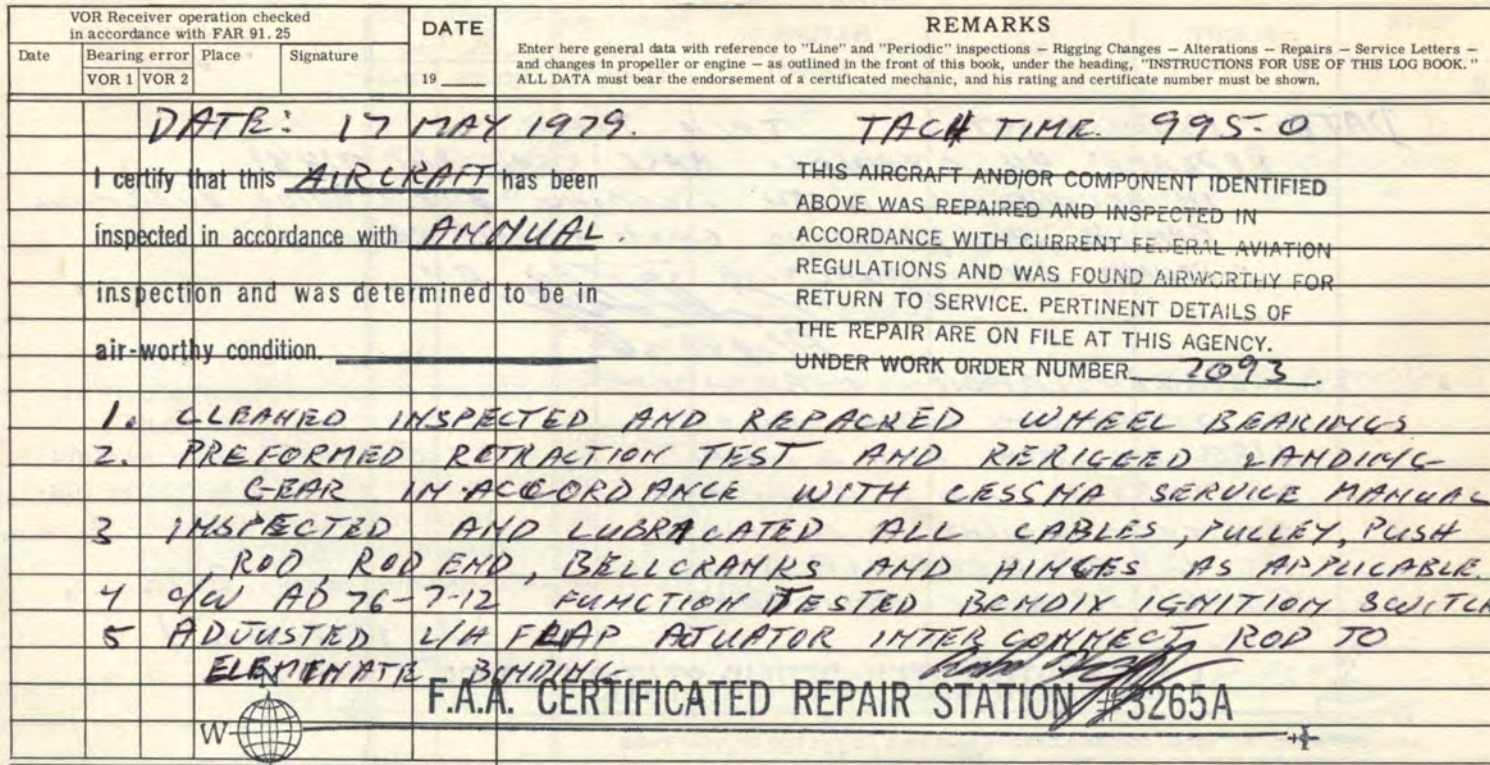 VOR Receiver operation checked
in accordance with FAR 91.25
DATE
REMARKS
Date
Bearing error
Place
Signature
VOR 1
VOR 2
19
Enter here general data with reference to "Line" and "Periodic" inspections — Rigging Changes — Alterations — Repairs — Service Letters —
and changes in propeller or engine — as outlined in the front of this book, under the heading, "INSTRUCTIONS FOR USE OF THIS LOG BOOK."
ALL DATA must bear the endorsement of a certificated mechanic, and his rating and certificate number must be shown.
DATE: 17 MAY 1979. TACH TIME. 995.0
I certify that this AIRCRAFT has been
inspected in accordance with ANNUAL.
inspection and was determined to be in
air-worthy condition.
THIS AIRCRAFT AND/OR COMPONENT IDENTIFIED
ABOVE WAS REPAIRED AND INSPECTED IN
ACCORDANCE WITH CURRENT FEDERAL AVIATION
REGULATIONS AND WAS FOUND AIRWORTHY FOR
RETURN TO SERVICE. PERTINENT DETAILS OF
THE REPAIR ARE ON FILE AT THIS AGENCY.
UNDER WORK ORDER NUMBER 2093.
1. CLEANED INSPECTED AND REPACKED WHEEL BEARINGS
2. PREFORMED RETRACTION TEST AND RERIGGED LANDING
GEAR IN ACCORDANCE WITH CESSNA SERVICE MANUAL
3 INSPECTED AND LUBRACATED ALL CABLES, PULLEY, PUSH
ROD, ROD END, BELLCRANKS AND HINGES AS APPLICABLE.
4 C/W AD 76-7-12 FUNCTION TESTED BENDIX IGNITION SWITCH
5 ADJUSTED L/H FLAP ATUATOR INTERCONNECT ROD TO
ELEMENATE BINDING
F.A.A. CERTIFICATED REPAIR STATION #3265A
N
W